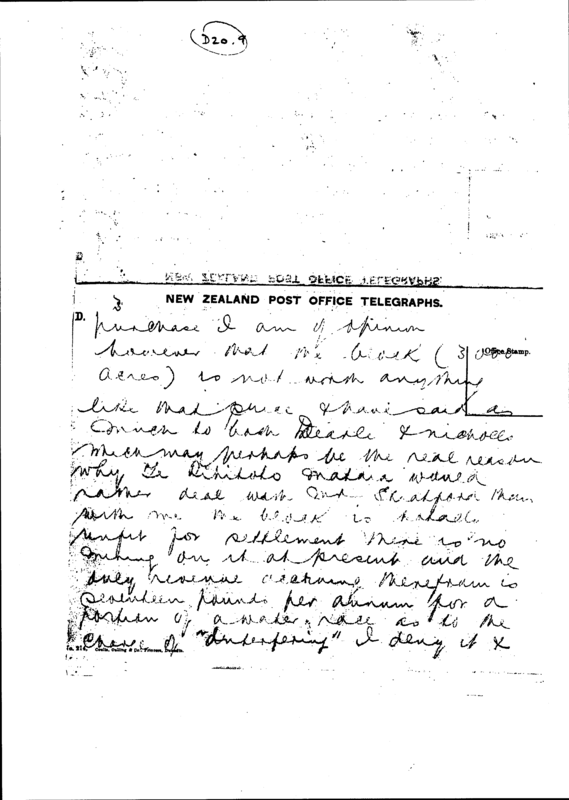 D20.9
D
NEW ZEALAND POST OFFICE TELEGRAPHS.
3
NEW ZEALAND POST OFFICE TELEGRAPHS.
D.
Office Stamp.
purchase I am of opinion
however that the block (3
acres) is not worth anything
like that price & have said as
much to both & Nicholls
which may perhaps be the real reason
why Te would
rather deal with than
with me the block is totally
unfit for settlement there is no
mining on it at present and the
only revenue accruing therefrom is
seventeen pounds per annum for a
portion of a water race as to the
charge of "interfering" I deny it &